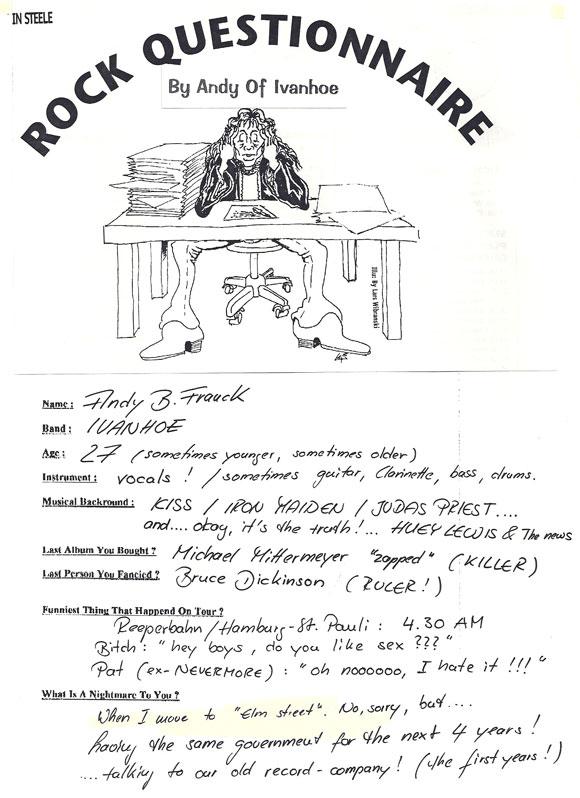 IN STEELE
ROCK QUESTIONNAIRE
By Andy Of Ivanhoe
Illu: By Lars Witwanski
Name : Andy B. Franck
Band : IVANHOE
Age : 27 (sometimes younger, sometimes older)
Instrument : vocals ! / sometimes guitar, Clarinette, bass, drums.
Musical Backround : KISS / IRON MAIDEN / JUDAS PRIEST....
and.... okay, it's the truth!... HUEY LEWIS & The news
Last Album You Bought ? Michael Mittermeyer "zapped" (KILLER)
Last Person You Fancied ? Bruce Dickinson (RULER!)
Funniest Thing That Happend On Tour ?
Reeperbahn/Hamburg-St. Pauli : 4.30 AM
Bitch : "hey boys, do you like sex ???"
Pat (ex-NEVERMORE) : "oh nooooo, I hate it !!!"
What Is A Nightmare To You ?
When I move to "Elm street". No, sorry, but....
having the same government for the next 4 years !
.... talking to our old record-company ! (the first years !)